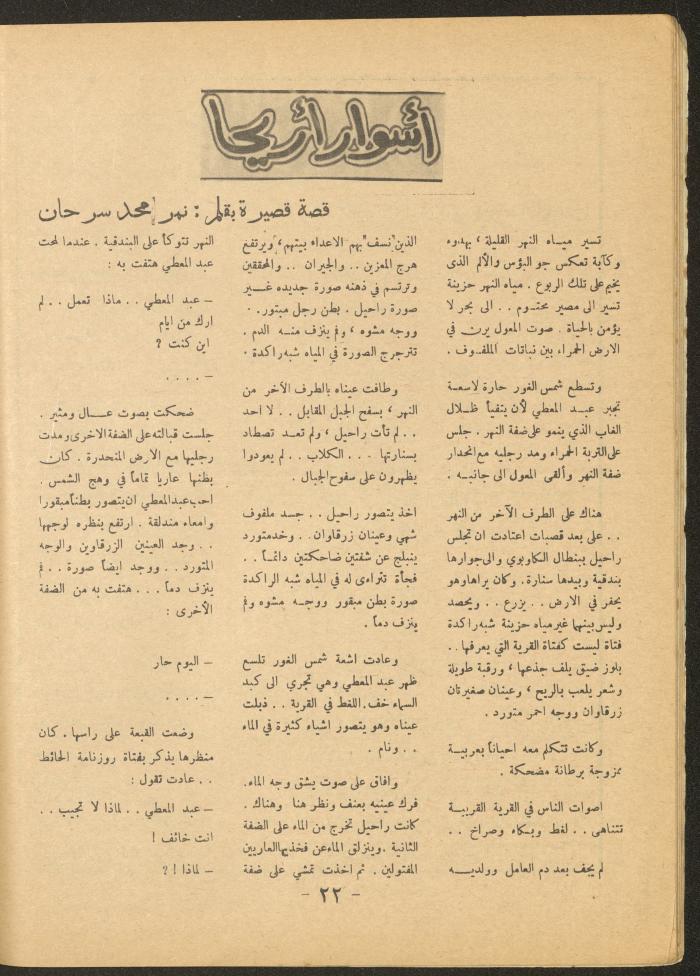 أسوار أريحا
قصة قصيرة بقلم : نمر محمد سرحان
تسير ميـاه النهر القليلة ، بهدوء
وكآبة تعكس جو البؤس والألم الذى
يخيم على تلك الربوع . مياه النهر حزينة
تسير الى مصير محتـوم . . الى بحر لا
يؤمن بالحياة . صوت المعول يرن في
الارض الحمراء بين نباتات الملفـوف .
وتسطع شمس الغور حارة لاسعـة
تجبر عبـد المعطي لأن يتفيأ ظـلال
الغاب الذي ينمو على ضفة النهر . جلس
على التربة الحمراء ومد رجليه مع انحدار
ضفة النهر وألقى المعول الى جانبـه .
هناك على الطرف الآخر من النهر
. . على بعد قصبات اعتادت ان تجلس
راحيل ببنطال الكاوبوي والى جوارها
بندقية وبيدها سنارة . وكان يراها وهو
يحفر في الارض . . يزرع . . ويحصد
وليس بينهما غير مياه حزينة شبه راكدة
فتاة ليست كفتاة القرية التي يعرفها . .
بلوز ضيق يلف جذعها ، ورقبة طويلة
وشعر يلعب بالريح ، وعينان صغيرتان
زرقاوان ووجه احمر متورد .
وكانت تتكلم معه احياناً بعربيـة
ممزوجة برطانة مضحكة .
اصوات الناس في القرية القريبـة
تتناهى . . لغط وبـكاء وصراخ . .
لم يجف بعد دم العامل وولديـــه
الذين نسف بهم الاعداء بيتهم ، ويرتفع
هرج المعزين . . والجيران . . والمحققين
وترتسم في ذهنه صورة جديده غـــير
صورة راحيل . بطن رجل مبتور . .
ووجه مشوه ، وفم ينزف منـه الدم .
تترجرج الصورة في المياه شبه راكدة .
وطافت عيناه بالطرف الآخر من
النهر ، بسفح الجبل المقابل . . لا احد
. . لم تأت راحيل ، ولم تعـد تصطاد
بسنارتها . . . الكلاب . . لم يعودوا
يظهرون على سفوح الجبال .
اخذ يتصور راحيل . . جسد ملفوف
شهي وعينان زرقاوان . . وخد متورد
ينبلج عن شفتين ضاحكتين دائمـاً . .
فجأة تتراءى له في المياه شبه الراكدة
صورة بطن مبقور ووجـه مشوه وفم
ينزف دماً .
وعادت اشعة شمس الغور تلسع
ظهر عبد المعطي وهي تجري الى كبد
السماء . خف اللغط في القرية . . ذبلت
عيناه وهو يتصور اشياء كثيرة في الماء
. . ونام .
وافاق على صوت يشق وجه الماء .
فرك عينيه بعنف ونظر هنا وهناك .
كانت راحيل تخرج من الماء على الضفة
الثانية . وينزلق الماء عن فخذيها العاريين
المفتولين . ثم اخذت تمشي على ضفة
النهر تتوكأ على البندقية . عندما لمحت
عبد المعطي هتفت به :
ـ عبد المعطي . . ماذا تعمل . . لم
ارك من ايام
اين كنت ؟
ـ . . . .
ضحكت بصوت عـــال ومثير .
جلست قبالته على الضفة الاخرى ومدت
رجليها مع الارض المنحدرة . كان
يظنها عاريا تماماً في وهج الشمس .
احب عبد المعطي ان يتصور بطناً مبقورا
وامعاء مندلقة . ارتفع بنظره لوجهها
. . وجد العينين الزرقاوين والوجه
المتورد . . ووجد ايضاً صورة . . فم
ينزف دماً . . . هتفت به من الضفة
الأخرى :
ـ اليوم حار
ـ . . . .
وضعت القبعة على راسها . كان
منظرها يذكر بفتاة روزنامة الحائط
. . عادت تقول :
ـ عبد المعطي . . لماذا لا تجيب . .
انت خائف !
ـ لماذا ! ؟
ـ ٢٢ ـ